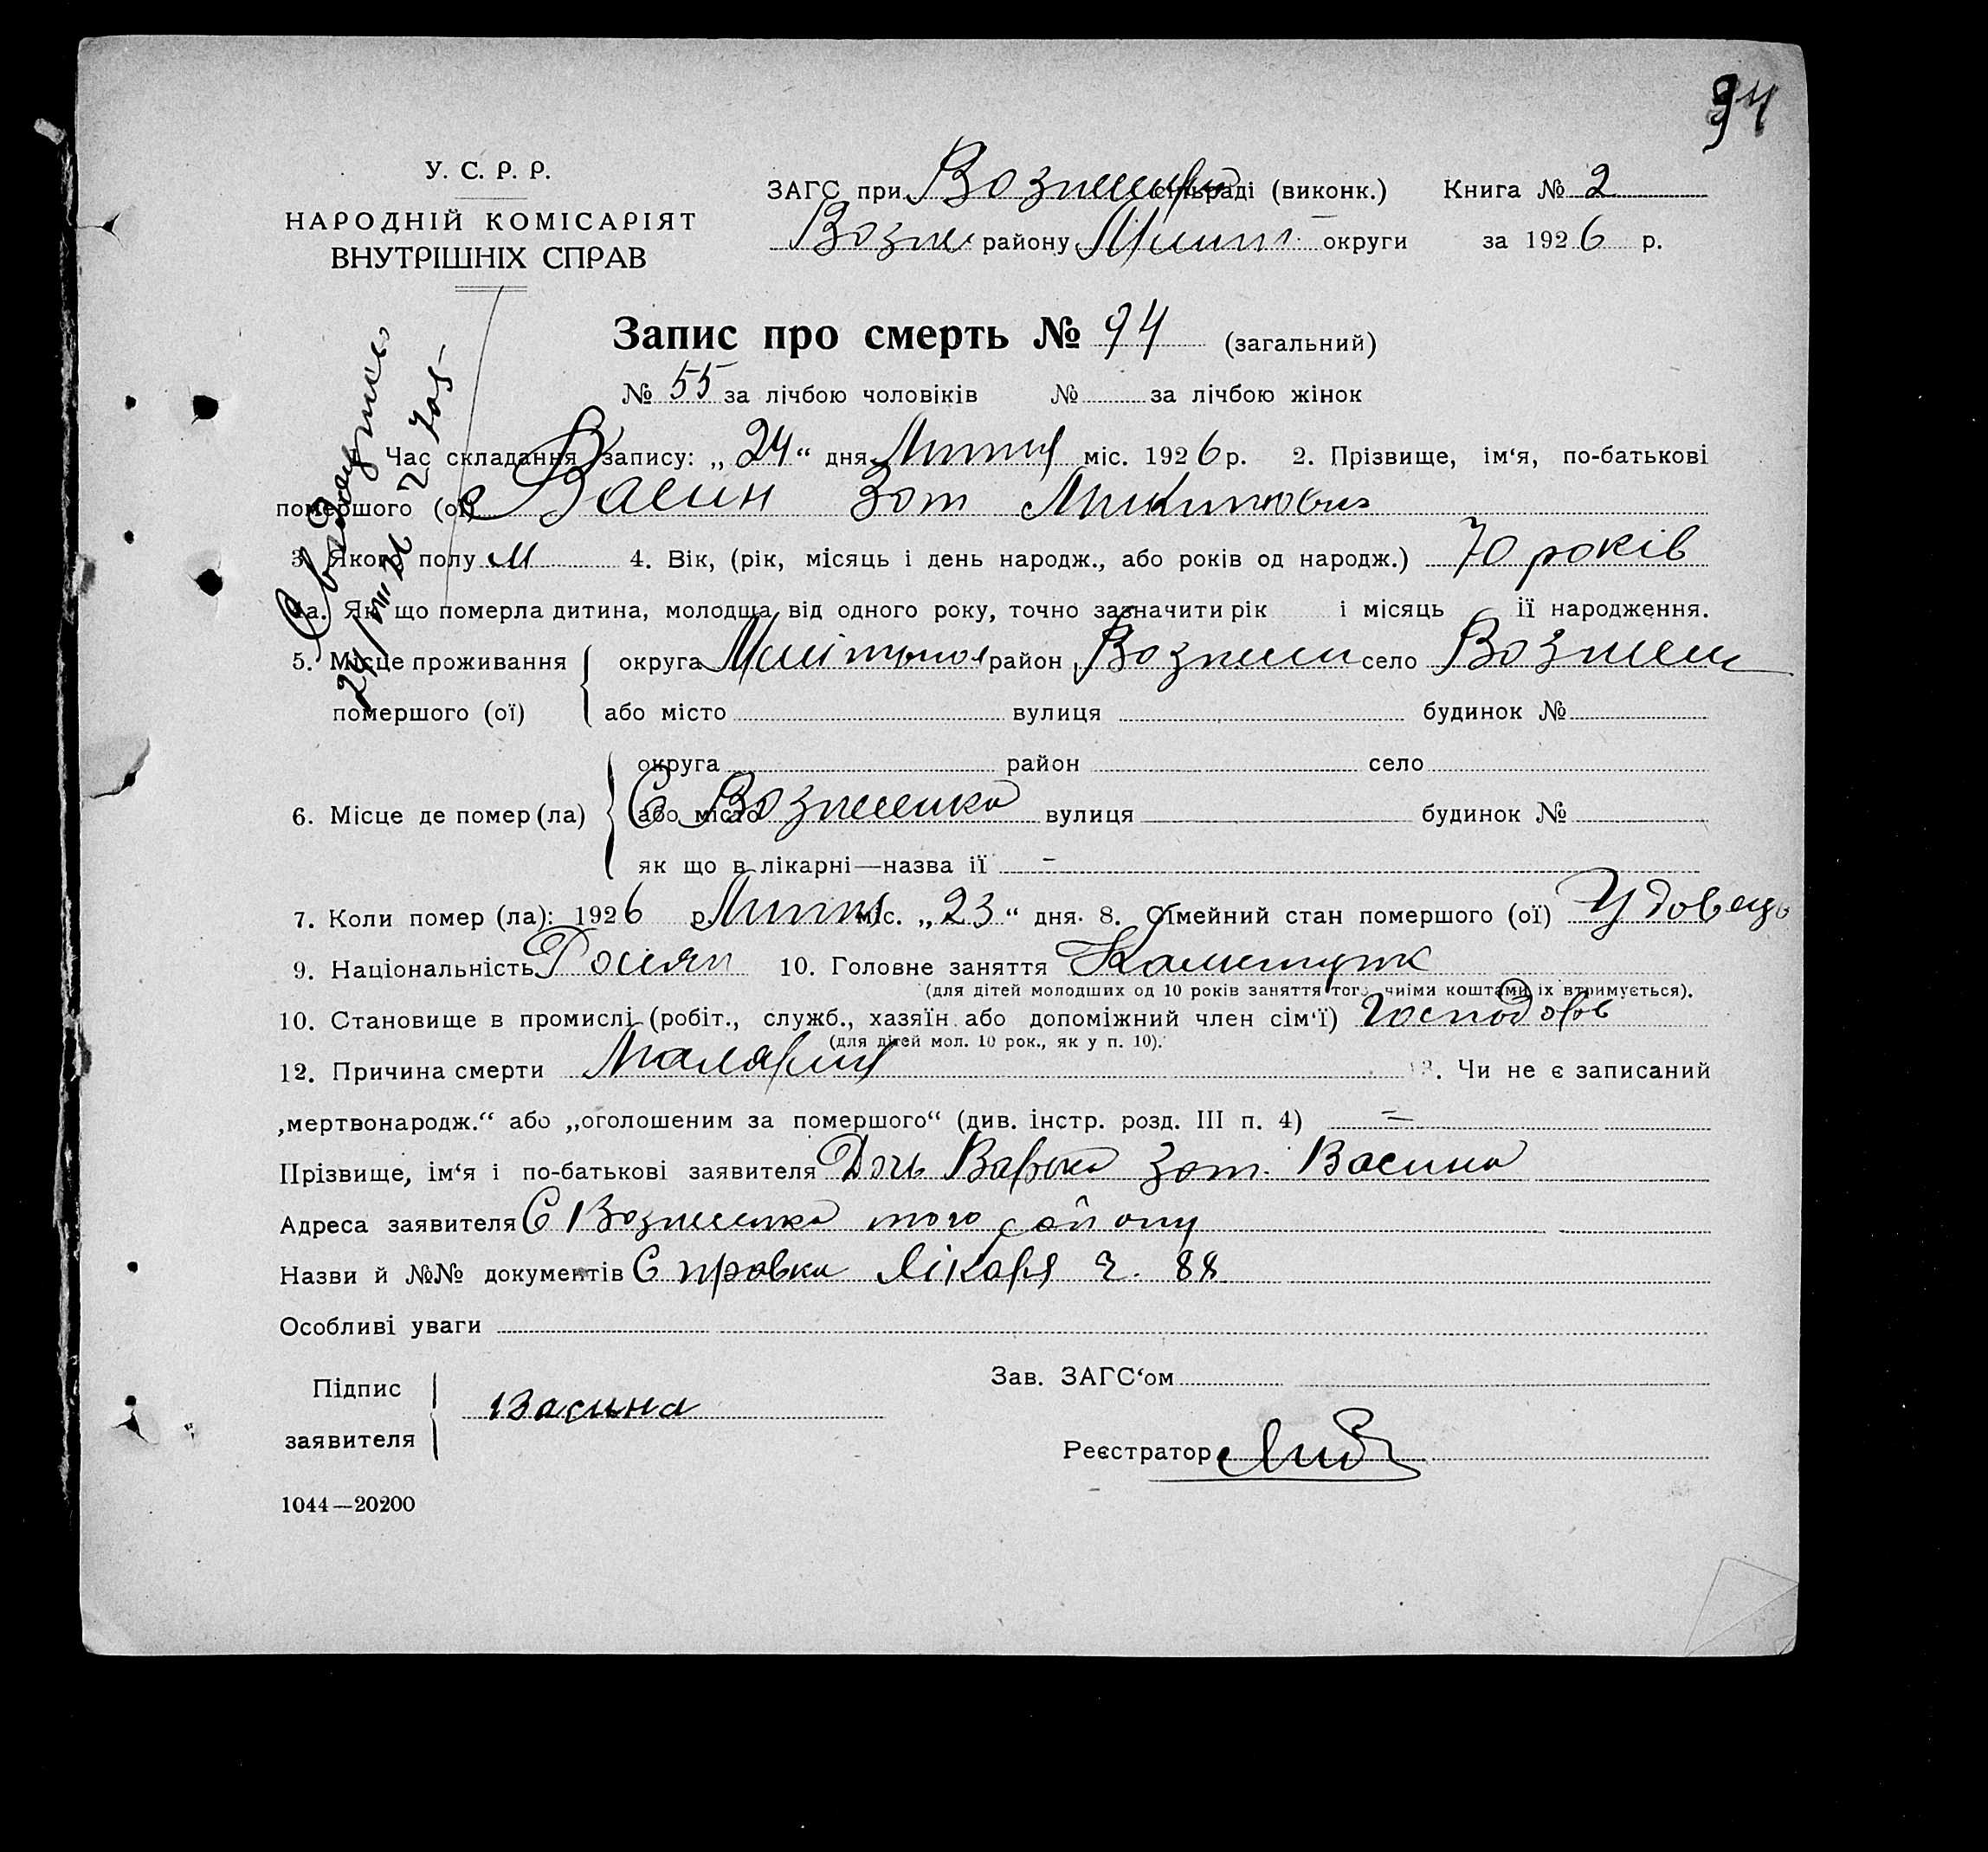 94
У. С. Р. Р.
НАРОДНІЙ КОМІСАРІЯТ
ВНУТРІШНІХ СПРАВ
ЗАГС при сільраді (виконк.) Книга № 2
Возне району округи за 1926 р.
Запис про смерть № 94 (загальний)
№ 55 за лічбою чоловіків № за лічбою жінок
1. Час складання запису: „24“ дня Липня міс. 1926 р. 2. Прізвище, ім‘я, по-батькові
помершого (ої) Васин Зот Микитович
3. Якого полу М 4. Вік, (рік, місяць і день народж., або років од народж.) 70 років
4а. Як що померла дитина, молодща від одного року, точно зазначити рік і місяць ії народження.
5. Місце проживання округа район Вознесен село Вознесен
помершого (ої) або місто вулиця будинок №
округа район село
6. Місце де помер (ла) або місто С Вознесенка вулиця будинок №
як що в лікарні—назва ії –
7. Коли помер (ла): 1926 р. Липня міс. „23“ дня. 8. Сімейний стан помершого (ої) Удовець
9. Національність Росіян 10. Головне заняття
(для дітей молодших од 10 років заняття того, чиїми коштами їх втримується).
10. Становище в промислі (робіт., служб., хазяїн або допоміжний член сім‘ї) Господар
(для дітей мол. 10 рок., як у п. 10).
12. Причина смерти Малярия 13. Чи не є записаний
„мертвонародж.“ або „оголошеним за помершого“ (див. інстр. розд. III п. 4) =
Прізвище, ім‘я і по-батькові заявителя Дочь Зот. Васина
Адреса заявителя С Вознесенка того району
Назви й №№ документів Справка Лікаря ч. 88
Особливі уваги
Підпис заявителя Васина
Зав. ЗАГС‘ом
Реєстратор
1044—20200